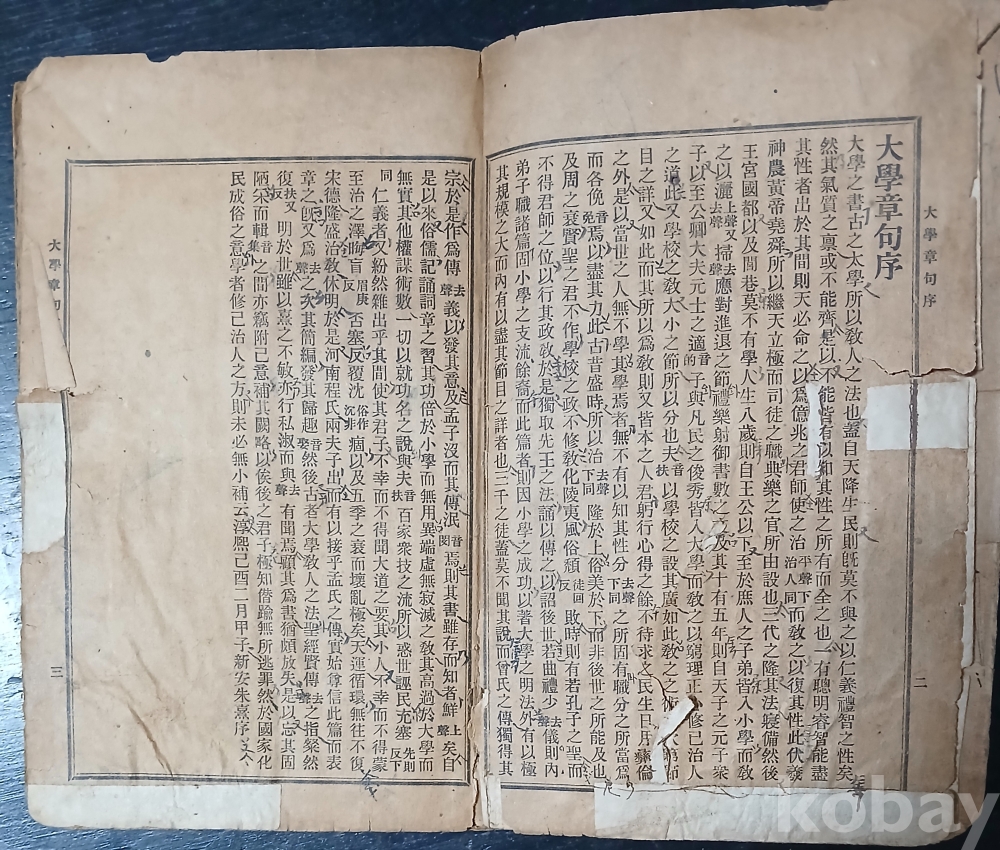 大學章句序
二
大學章句序
大學之書古之太學所以敎人之法也蓋自天降生民則旣莫不與之以仁義禮智之性矣
然其氣質之稟或不能齊是以不能皆有以知其性之所有而全之也一有聰明睿智能盡
其性者出於其間則天必命之以爲億兆之君師使之治平聲治人同而敎之以復其性此伏羲
神農黃帝堯舜所以繼天立極而司徒之職典樂之官所由設也三代之隆其法寖備然後
王宮國都以及閭巷莫不有學人生八歲則自王公以下至於庶人之子弟皆入小學而敎
之以灑上聲又去聲掃去聲應對進退之節禮樂射御書數之文及其十有五年則自天子之元子衆
子以至公卿大夫元士之適音的子與凡民之俊秀皆入大學而敎之以窮理正心修己治人
之道此又學校之敎大小之節所以分也夫音扶以學校之設其廣如此敎之之術其次第節
目之詳又如此而其所以爲敎則又皆本之人君躬行心得之餘不待求之民生日用彝倫
之外是以當世之人無不學其學焉者無不有以知其性分去聲下同之所固有職分之所當爲
而各俛音免焉以盡其力此古昔盛時所以治去聲下同隆於上俗美於下而非後世之所能及也
及周之衰賢聖之君不作學校之政不修敎化陵夷風俗頹徒回反敗時則有若孔子之聖而
不得君師之位以行其政敎於是獨取先王之法誦以傳之以詔後世若曲禮少去聲儀則內
弟子職諸篇固小學之支流餘裔而此篇者則因小學之成功以著大學之明法外有以極
其規模之大而內有以盡其節目之詳者也三千之徒蓋莫不聞其說而曾氏之傳獨得其
宗於是作爲傳去聲義以發其意及孟子沒而其傳泯音閔焉則其書雖存而知者鮮上聲矣自
是以來俗儒記誦詞章之習其功倍於小學而無用異端虛無寂滅之敎其高過於大學而
無實其他權謀術數一切以就功名之說與夫音扶百家衆技之流所以惑世誣民充塞先則反下同
仁義者又紛然雜出乎其間使其君子不幸而不得聞大道之要其小人不幸而不得蒙
至治之澤晦盲眉庚反否塞反覆沈俗作沉非痼以及五季之衰而壞亂極矣天運循環無往不復
宋德隆盛治敎休明於是河南程氏兩夫子出而有以接乎孟氏之傳實始尊信此篇而表
章之旣又爲去聲之次其簡編發其歸趣音娶然後古者大學敎人之法聖經賢傳去聲之指粲然
復扶又反明於世雖以熹之不敏亦幸私淑而與去聲有聞焉顧其爲書猶頗放失是以忘其固
陋采而輯音集之間亦竊附己意補其闕略以俟後之君子極知僭踰無所逃罪然於國家化
民成俗之意學者修己治人之方則未必無小補云淳熙己酉二月甲子新安朱熹序
大學章句
三
kobay